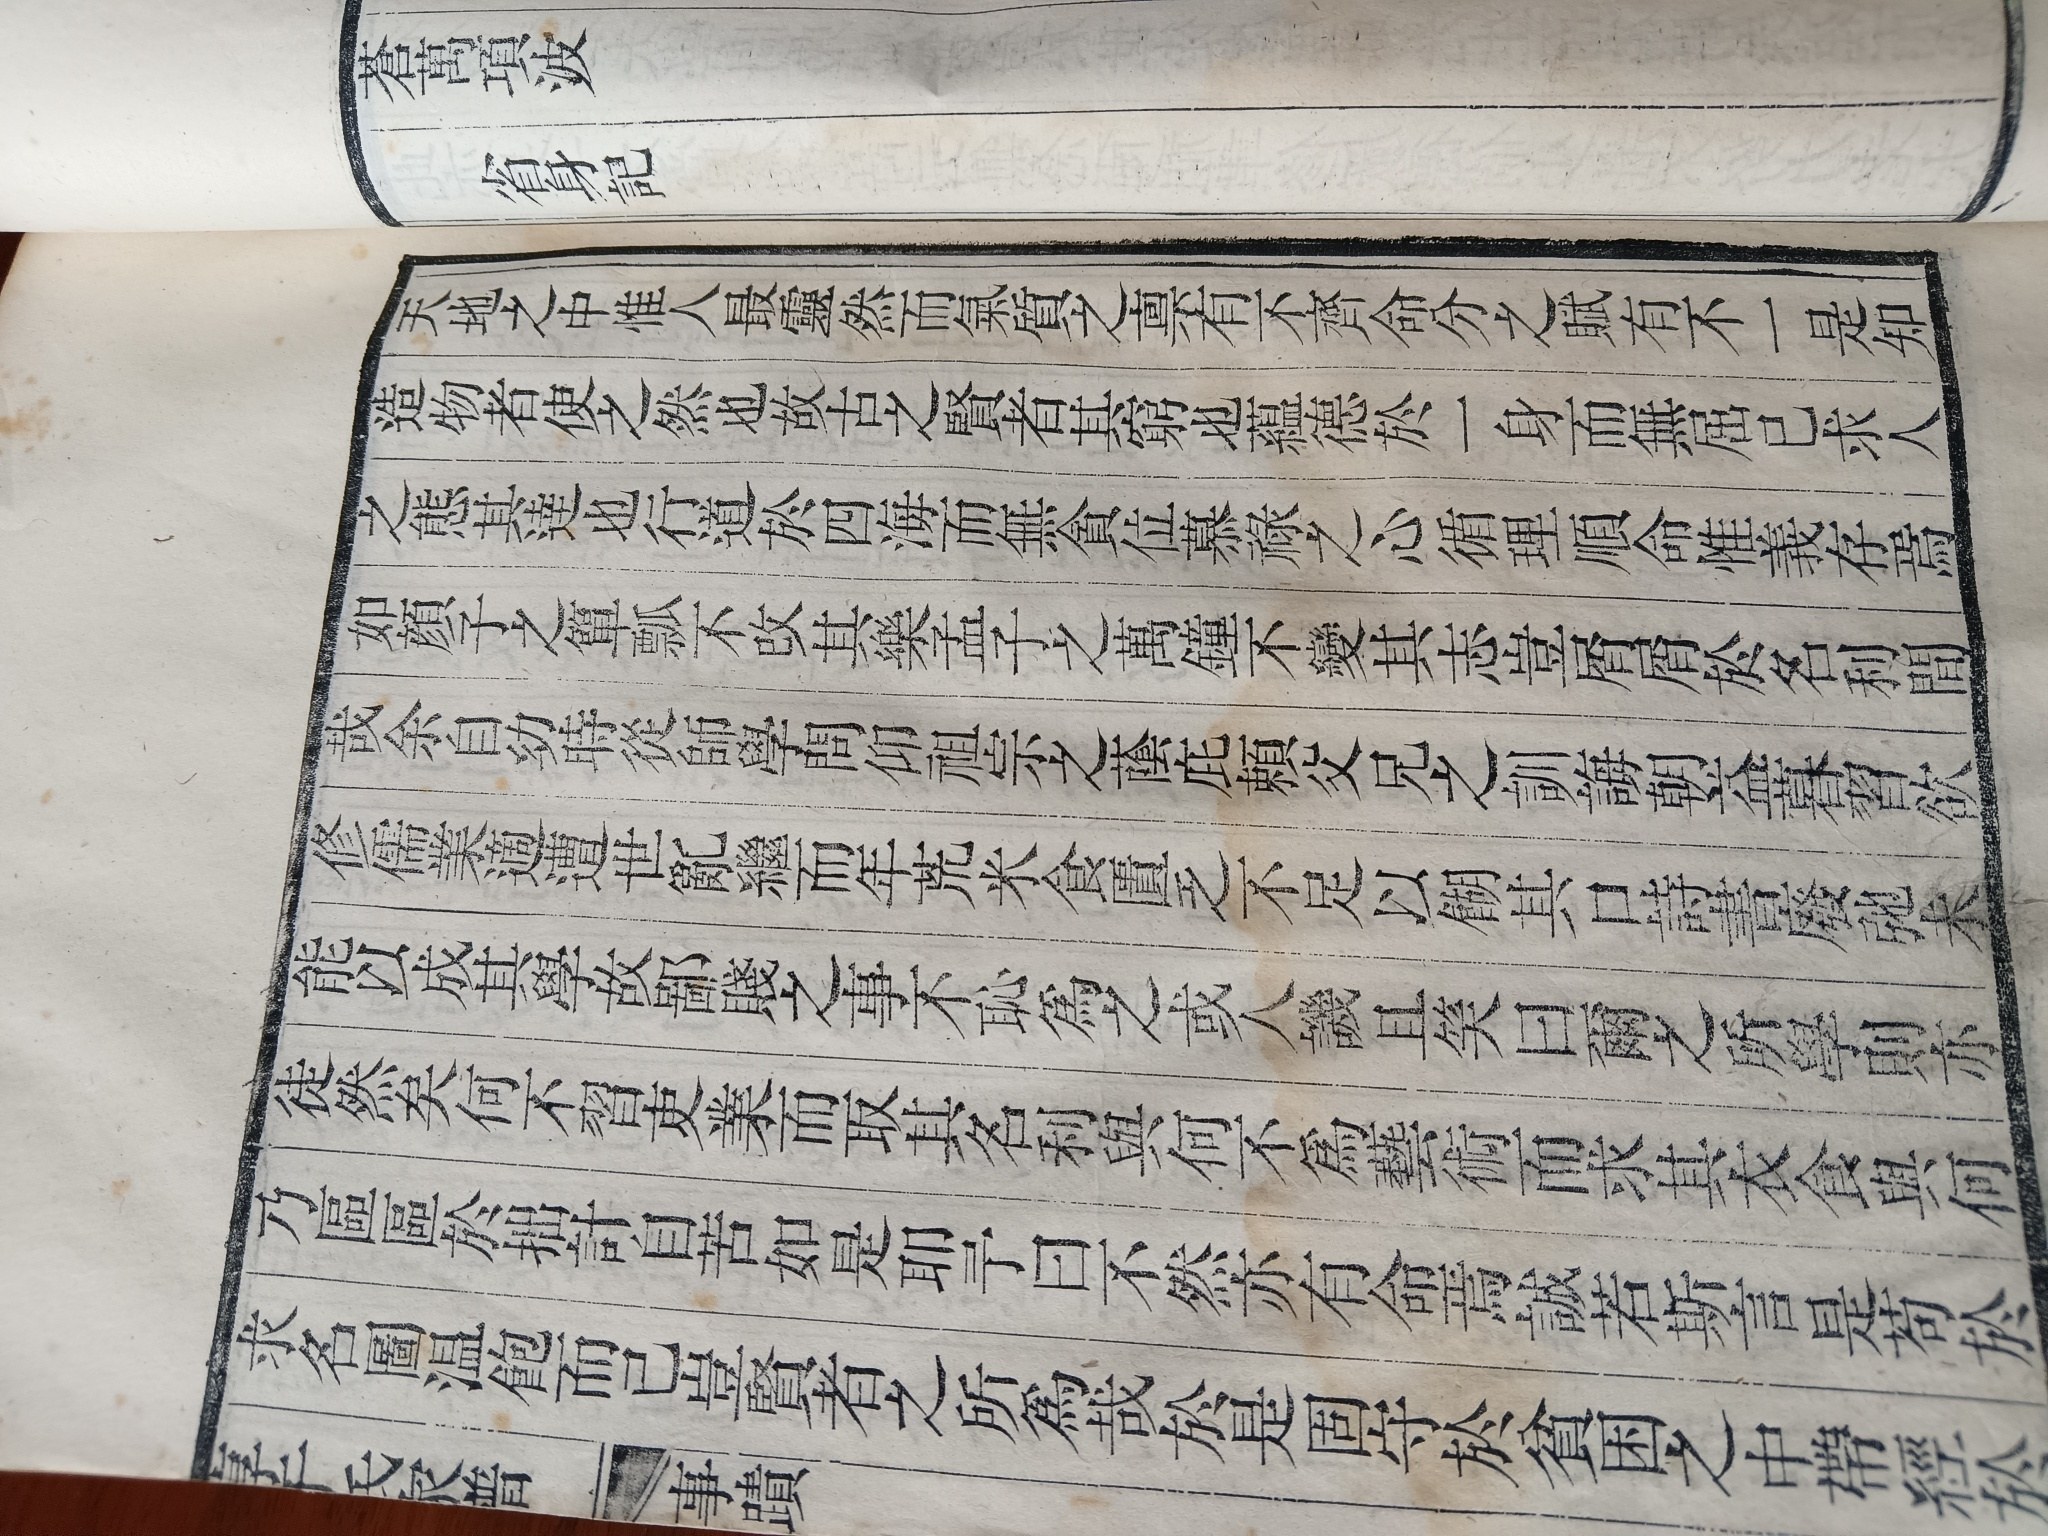 蒼萬項波
省身記
天地之中惟人最靈然而氣質之禀有不齊命分之賦有不一是知
造物者使之然也故古之賢者其窮也蘊德於一身而無屈己求人
之態其達也行道於四海而無貪位慕祿之心循理順命惟義存焉
如顏子之簞瓢不改其樂孟子之萬鐘不變其志豈屑屑於名利間
哉余自幼時從師學問仰祖宗之蔭庇賴父兄之訓誨朝益暮習欲
修儒業適遭世亂繼而年荒米食匱乏不足以餬其口詩書廢弛未
能以成其學故鄙賤之事不恥為之或人譏且笑曰爾之所學則亦
徒然矣何不習吏業而取其名利與何不為藝術而求其衣食與何
乃區區於拙計自苦如是耶予曰不然亦有命焉誠若斯言是苟於
求名圖温飽而已豈賢者之所為哉於是固守於貧困之中帶經於
氏家譜
事蹟